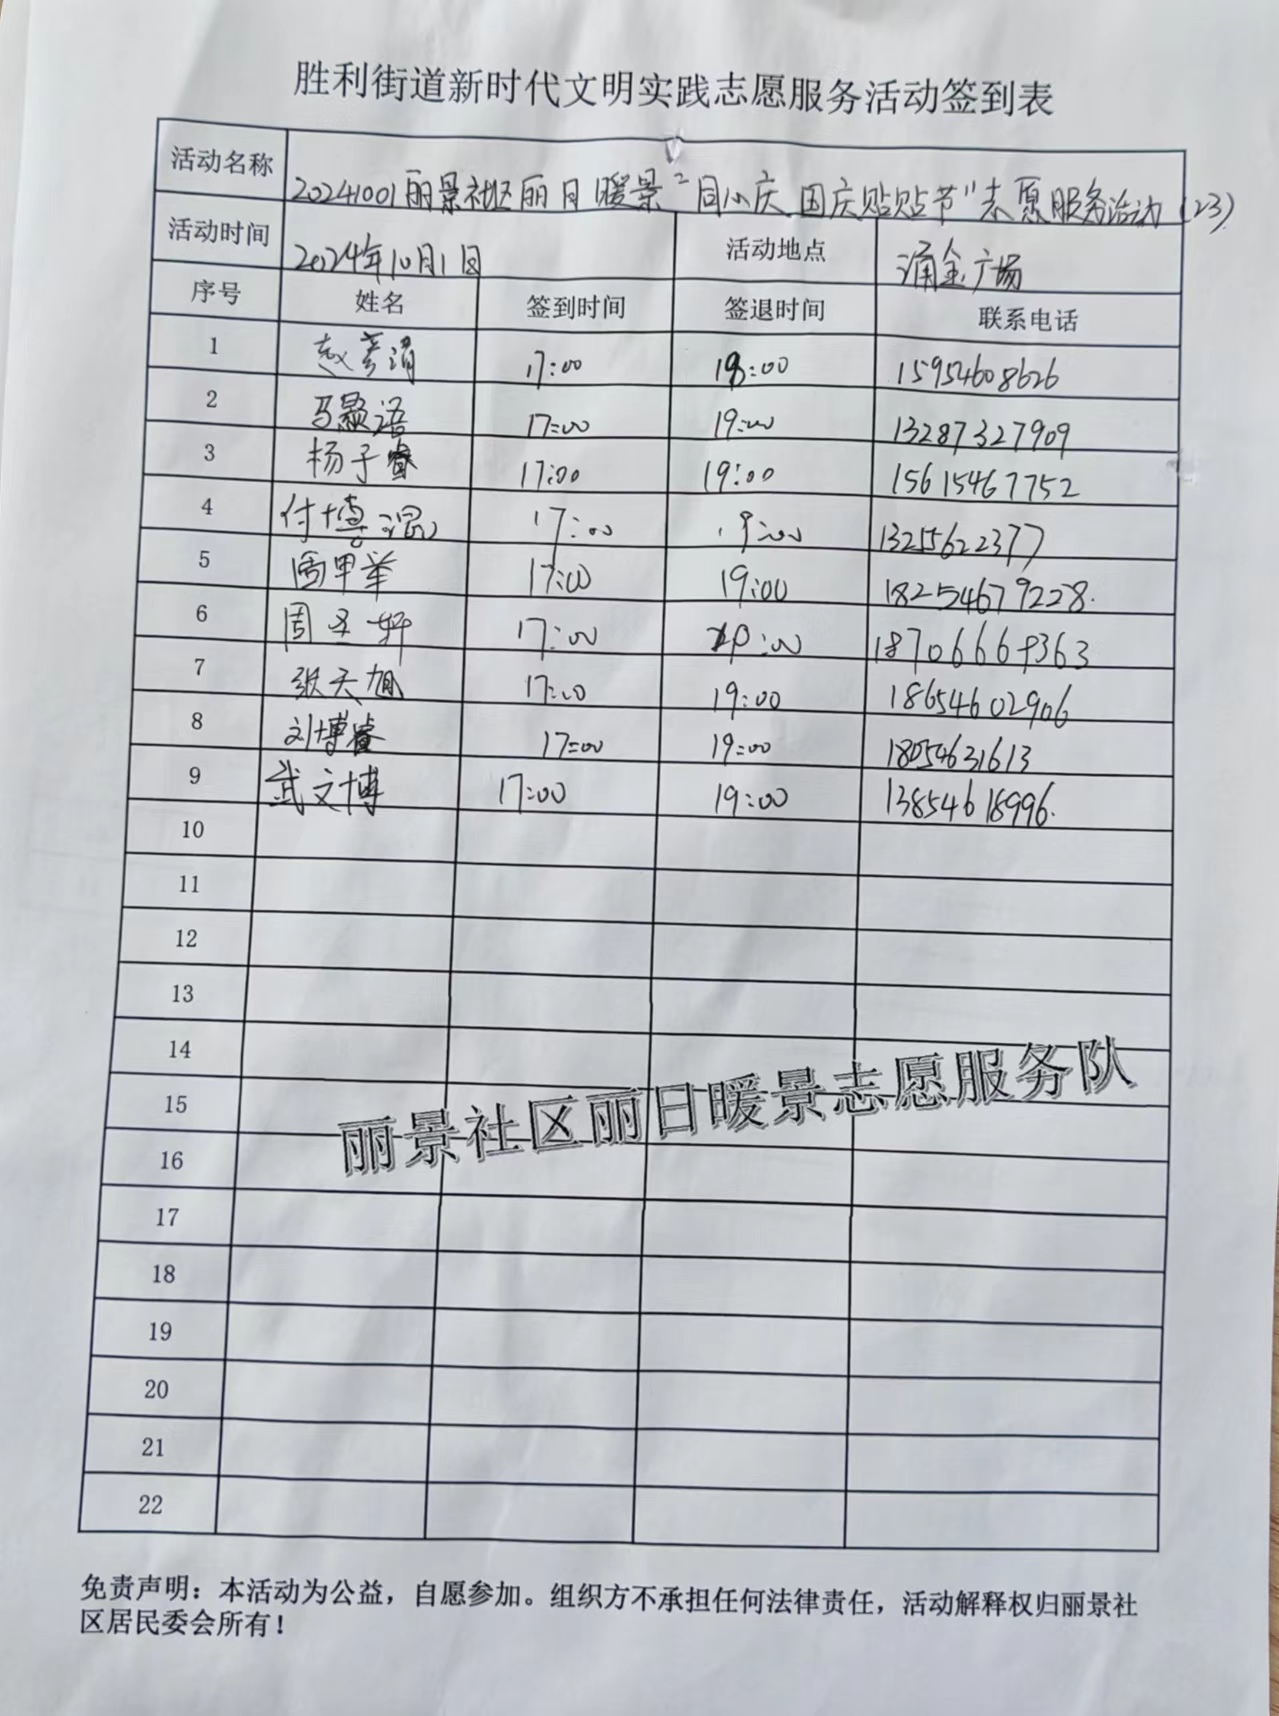 胜利街道新时代文明实践志愿服务活动签到表
活动名称 20241001丽景社区丽日暖景"同小庆 国庆贴贴节"志愿服务活动(23)
活动时间 2024年10月1日 活动地点 涌金广场
序号 姓名 签到时间 签退时间 联系电话
1 17:00 19:00 15954608626
2 马颢语 17:00 19:00 13287327909
3 杨子睿 17:00 19:00 15615467752
4 付博 17:00 19:00 13255622377
5 17:00 19:00 18254679228.
6 周 轩 17:00 19:00 18706669363
7 张天旭 17:00 19:00 18654602906
8 刘博睿 17:00 19:00 18054631613
9 武文博 17:00 19:00 13854618996.
10
11
12
13
14
15
16
17
18
19
20
21
22
丽景社区丽日暖景志愿服务队
免责声明：本活动为公益，自愿参加。组织方不承担任何法律责任，活动解释权归丽景社
区居民委会所有！